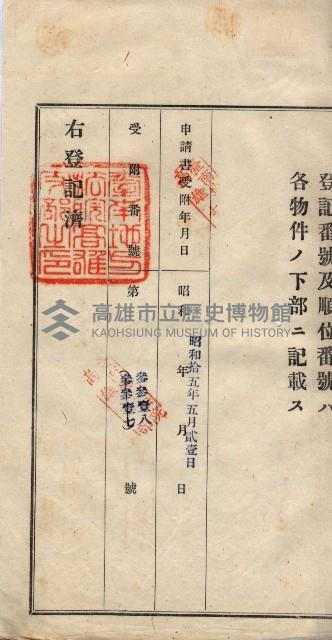 登記番號及順位番號ハ
各物件ノ下部ニ記載ス
申請書受附年月日 昭和 年 月 日
昭和拾五年五月貳壹日
受附番號 第 號
參參壹八
(參參壹七)
右登記濟
高雄市立歷史博物館
KAOHSIUNG MUSEUM OF HISTORY